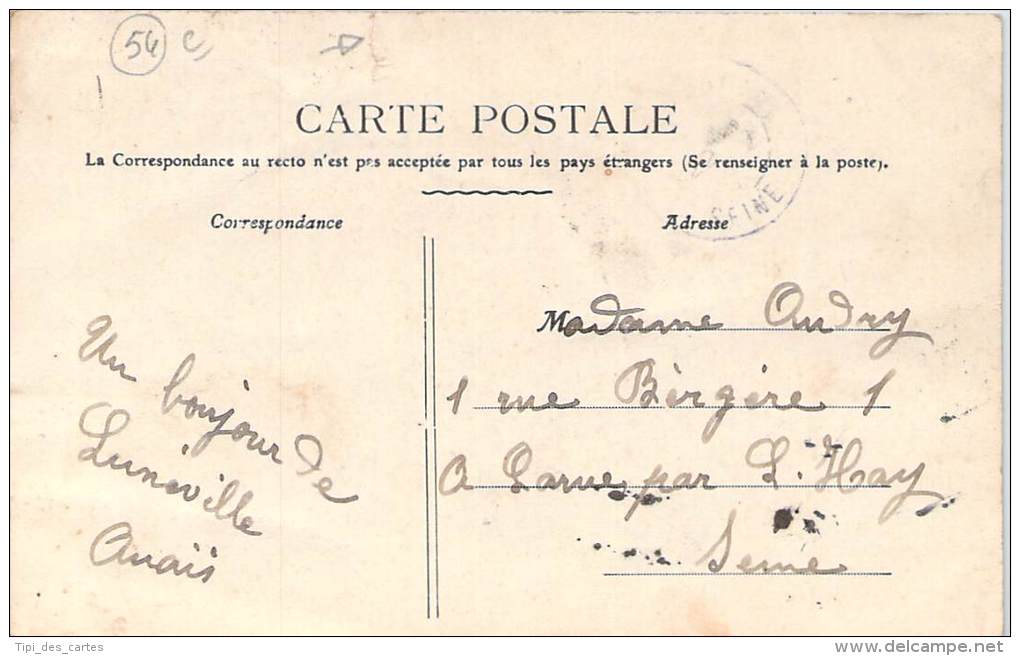 54
CARTE POSTALE
La Correspondance au recto n'est pas acceptée par tous les pays étrangers (Se renseigner à la poste).
Correspondance
Un bonjour de
Lunéville
Anaïs
Adresse
SEINE
Madame Audry
1 rue Bergère 1
A Larue par L. Hay
Seine
Tipi_des_cartes
www.delcampe.net